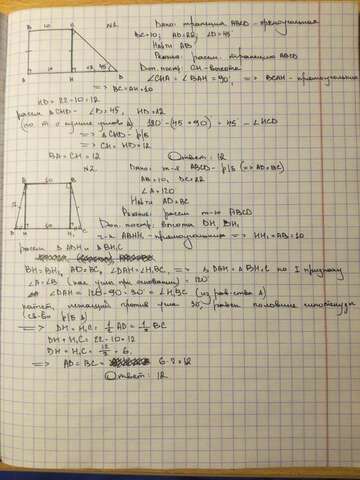 10
12
45°
N1
Дано: трапеция ABCD - прямоугольная
BC=10; AD=22; ∠D=45
Найти AB
Решение: рассм. трапецию ABCD
Доп. постр. CH - высота
∠CHA = ∠BAH = 90°, => BCAH - прямоугольник
=> BC = AH = 10
HD = 22-10 = 12
рассм △CHD - ∠D=45, HD=12
(по т о сумме углов △) 180-(45+90) = 45 - ∠HCD
=> △CHD - р/б
=> CH = HD = 12
BA = CH = 12
Ответ: 12
N2.
Дано: т-я ABCD - р/б (=> AD=BC)
AB=10, DC=22
∠A=120
Найти AD=BC
Решение: рассм т-ю ABCD
Доп. постр: высота DH, BH,
=> HH₁=AB=10
рассм △ADH и △BH₁C
BH=BH₁, AD=BC, ∠DAH=∠H₁BC, => △DAH=△BH₁C по I признаку
∠A=∠B (как углы при основании) = 120°
∠DAH = 120-90=30=∠H₁BC (из рав-ства △)
катет, лежащий против угла 30, равен половине гипотенузы
(св-во р/б △)
=> DH = H₁C = ½ AD = ½ BC
DH + H₁C = 22-10=12
DH = H₁C = 12/2 = 6.
=> AD = BC = 6·2=12
Ответ: 12